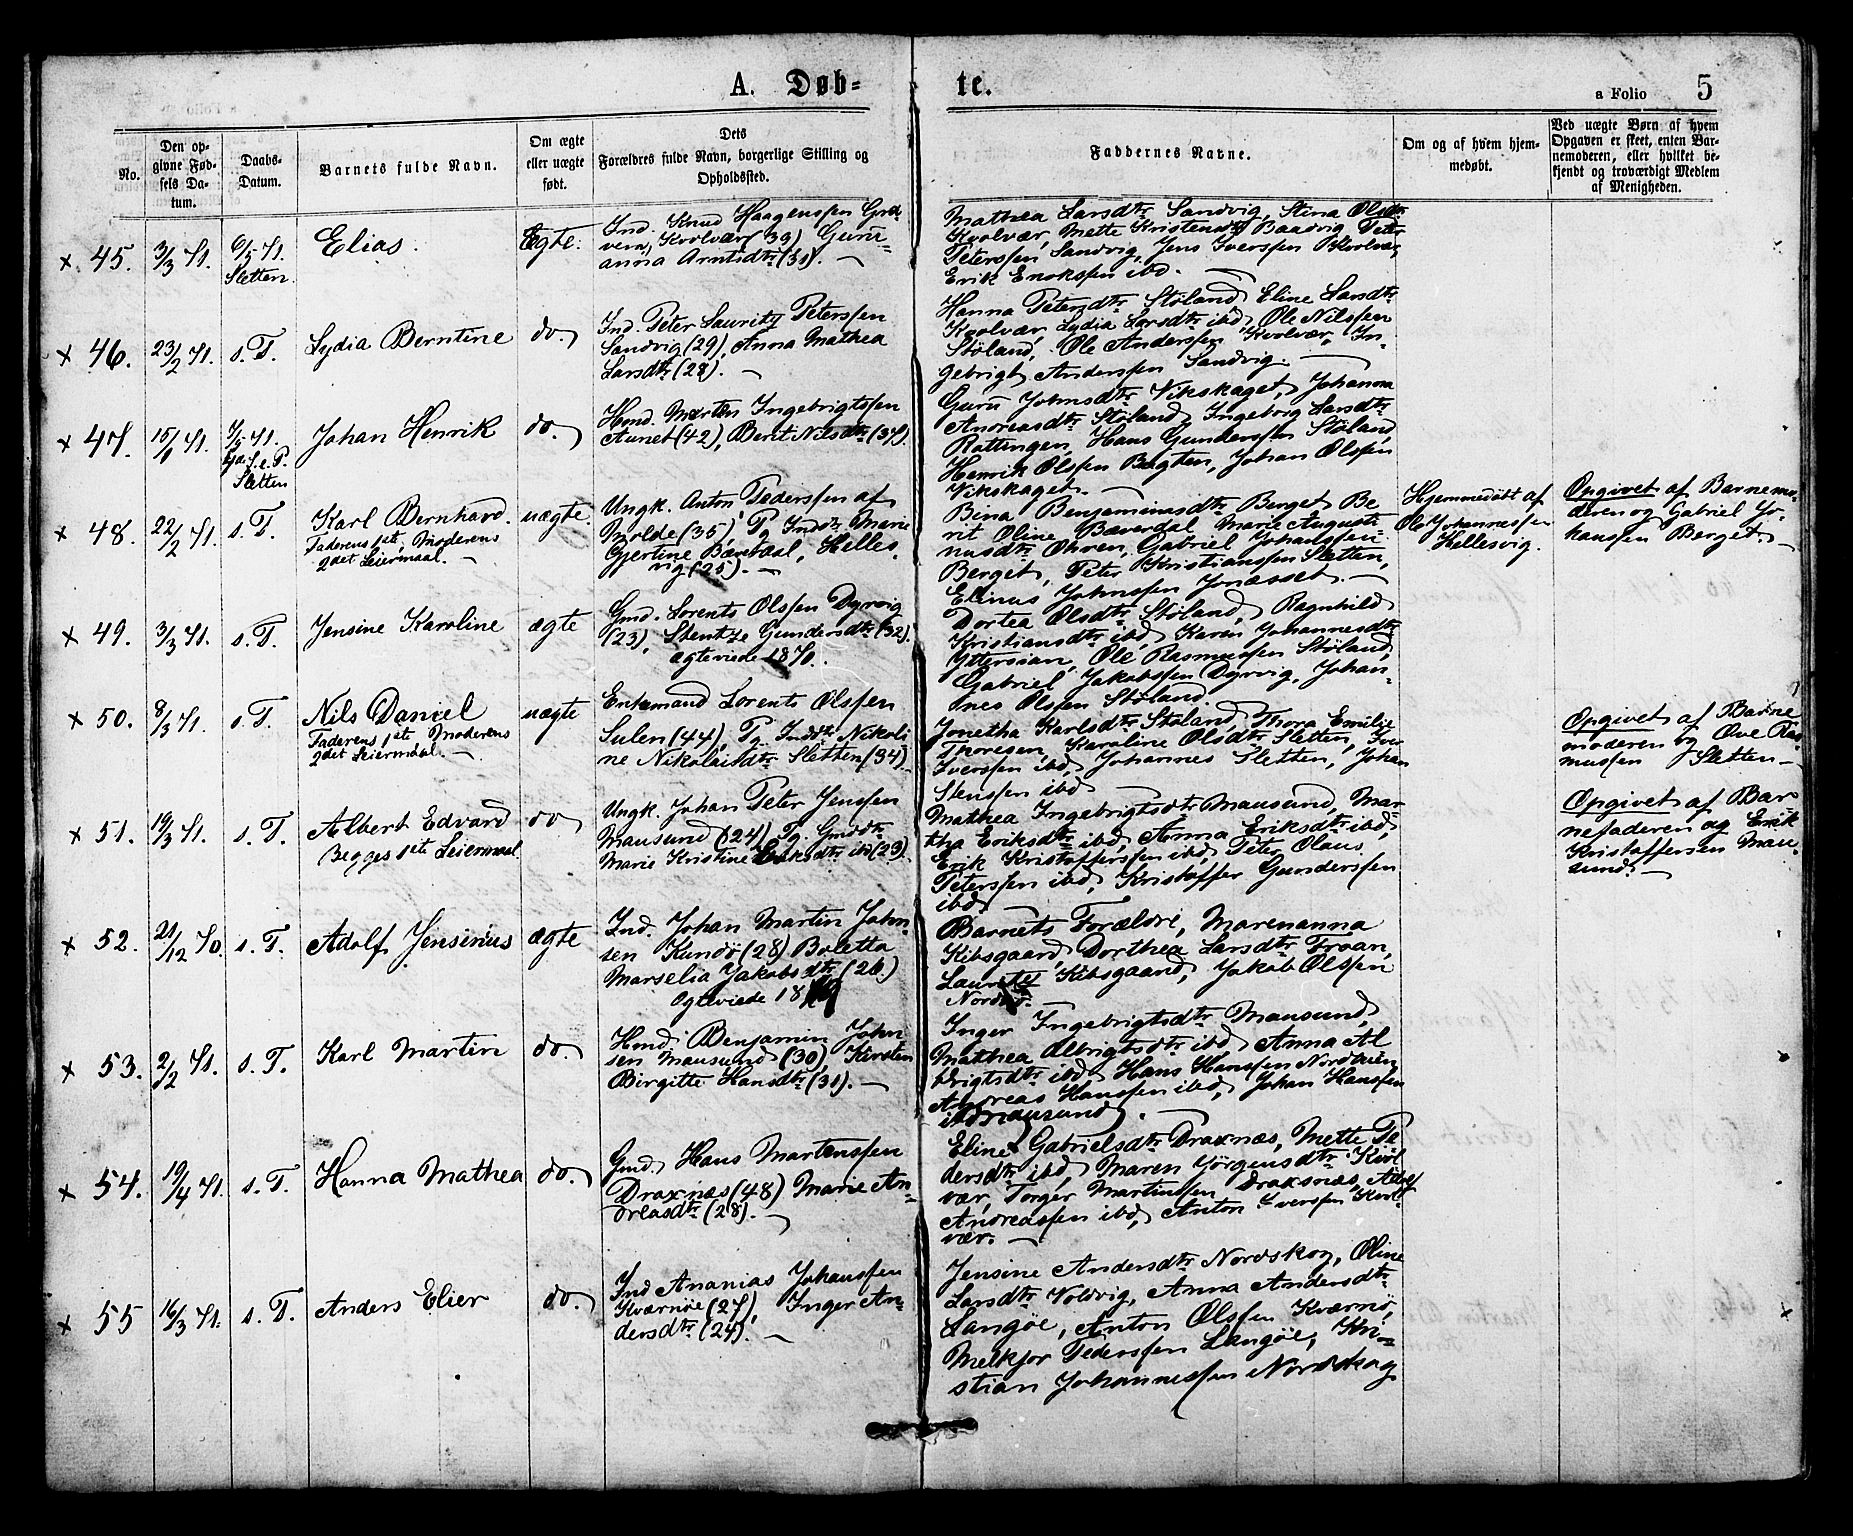 A. Døb-
te.
a Folio 5
No.
Den op-
givne Fød-
sels Da-
tum.
Daabs-
Datum.
Barnets fulde Navn.
Om ægte
eller uægte
født.
Dets
Forældres fulde Navn, borgerlige Stilling og
Opholdssted.
Faddernes Navne.
Om og af hvem hjem-
medøbt.
Ved uægte Børn af hvem
Opgaven er skeet, enten Bar-
nemoderen, eller hvilket be-
kjendt og troværdigt Medlem
af Menigheden.
× 45.
3/3 71.
6/5 71.
Sletten
Elias.
Ægte.
Ind. Knud Haagenssen
Kvolvær (39) Guru-
anna Arntsdtr (31). —
Mathea Larsdtr Sandvig, Stina Olsdtr
Kvolvær, Mette Kristensdtr Baadvig Peter
Peterssen Sandvig, Jens Iverssen Kvolvær,
Erik Enokssen ibd. —
× 46.
23/2 71.
s. T.
Lydia Berntine
do.
Ind. Peter Lauritz Peterssen
Sandvig (29), Anna Mathea
Larsdtr (28). —
Hanna Petersdtr Støland, Eline Larsdtr
Kvolvær, Lydia Larsdtr ibd, Ole Nilssen
Støland, Ole Anderssen Kvolvær, In-
gebrigt Anderssen Sandvig. —
× 47.
15/1 71.
7/5 71.
4de S. e. P.
Sletten
Johan Henrik
do.
Hmd. Morten Ingebrigtssen
Aunet (42), Berit Nilsdtr (37).
Guru Johnsdtr Vikskaget, Johanna
Andreasdtr Støland, Ingeborg Larsdtr
Rottingen, Hans Gunderssen Støland,
Henrik Olssen Bogten, Johan Olssen
Vikskaget. —
× 48.
22/2 71.
s. T.
Karl Bernhard.
Faderens 1ste, Moderens
2det Leiermaal. —
uægte.
Ungk. Anton Pederssen af
Molde (35), Pg Indtr Marie
Gjertine Bæverdal, Helles-
vig (25). —
Bina Benjaminsdtr Berget Be-
rit Oline Bæverdal, Marie August-
inusdtr Ohren, Gabriel Johanssen
Berget, Peter Kristianssen Sletten,
Elinus Johnssen Jonæsset. —
Hjemmedøbt af
Ole Johannessen
Hellesvig.
Opgivet af Barnemo-
deren og Gabriel Jo-
hanssen Berget. —
× 49.
3/3 71.
s. T.
Jensine Karoline
ægte
Gmd. Lorents Olssen Dyrvig
(23), Gundersdtr (32).
Ægteviede 1870.
Dortea Olsdtr Støland, Ragnhild
Kristiansdtr ibd, Karen Johannesdtr
Yttersian, Ole Rasmussen Støland,
Gabriel Jakobssen Dyrvig, Johan-
nes Olssen Støland.
× 50.
8/3 71.
s. T.
Nils Daniel
Faderens 1ste Moderens
2det Leiermaal. —
uægte
Enkemand Lorents Olssen
Sulen (44), Pg. Indtr Nikoli-
ne Nikolaisdtr Sletten (34). —
Jonetha Karlsdtr Støland, Thora Emilie
Thoresen, Karoline Olsdtr Sletten, Iver
Iverssen ibd, Johannes Sletten, Johan
Stenssen ibd —
Opgivet af Barne
moderen og Ove Ras-
mussen Sletten —
× 51.
19/3 71.
s. T.
Albert Edvard
Begges 1ste Leiermaal.
do
Ungk. Johan Peter Jenssen
Mausund (24), Pg. Gmdtr
Marie Kristine Eriksdtr ibd (23).
Mathea Ingebrigtsdtr Mausund, Mar-
tha Eriksdtr ibd, Anna Eriksdtr ibd,
Erik Kristofferssen ibd, Peter Olaus
Peterssen ibd, Kristoffer Gunderssen
ibd. —
Opgivet af Bar-
nefaderen og Erik
Kristoffersen Mau-
sund. —
× 52.
21/12 70.
s. T.
Adolf Jensinius
ægte
Ind. Johan Martin John-
sen Kunsø (28) Boletta
Marselia Jakobsdtr (26.)
Ægteviede 18
Barnets Forældre, Marenanna
Kibsgaard, Dorthea Larsdtr Froan,
Lauritz Kibsgaard, Jakob Olssen
× 53.
2/2 71.
s. T.
Karl Martin
do.
Hmd. Benjamin John
sen Mausund (30), Kirsten
Birgitte Hansdtr (31). —
Inger Ingebrigtsdtr Mausund,
Mathea Albrigtsdtr ibd Anna Al
brigtsdtr ibd, Hans Hanssen
Andreas Hanssen ibd, Johan Hanssen
ibd Mausund. —
× 54.
19/4 71.
s. T.
Hanna Mathea
do.
Gmd. Hans Martenssen
Draxnæs (48) Marie An-
dreasdtr (28). —
Eline Gabrielsdtr Draxnæs, Mette Pe
dersdtr ibd, Maren Jørgensdtr Kvol
vær, Torger Martinssen Draxnæs,
Andreassen ibd, Anton Iverssen Kvol-
vær. —
× 55
16/3 71.
s. T.
Anders Elier
do.
Ind Ananias Johanssen
Kværnøe (27), Inger An-
dersdtr (24). —
Jensine Andersdtr Nordskog, Oline
Larsdtr Voldvig, Anna Andersdtr
Langøe, Anton Olssen Kværnø,
Melkjor Pederssen Langøe, Kri-
stian Johannessen Nordskog